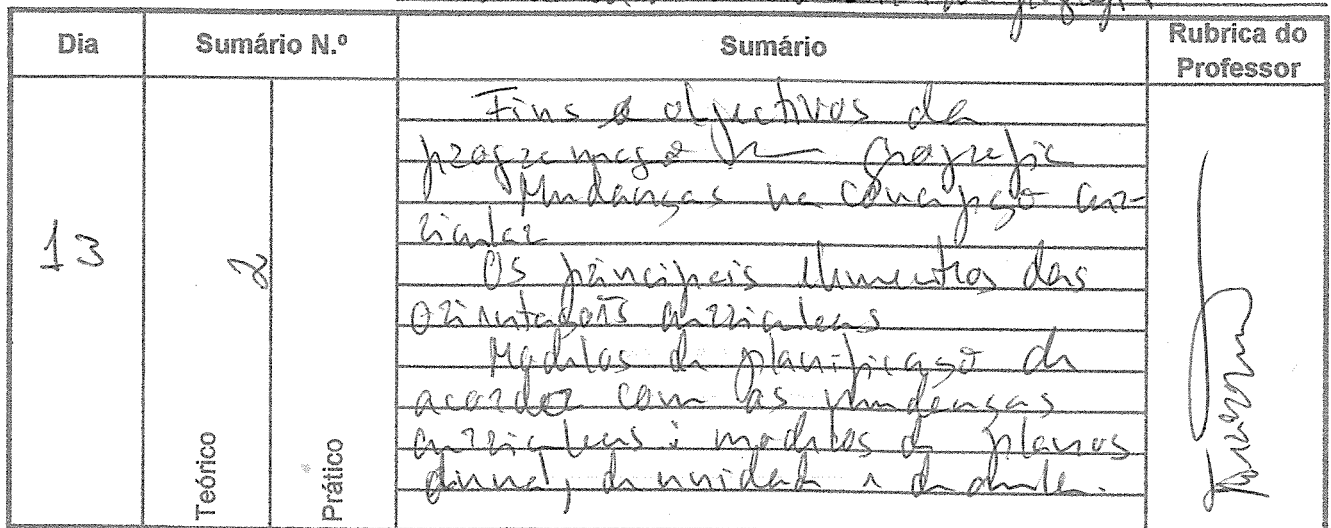 Dia Sumário N.º Sumário Rubrica do Professor
Fins e objectivos da
programação em Geografia
Mudanças na concepção cur-
ricular
13 2 Os principais elementos das
orientações curriculares
Modelos de planificação de
acordo com as mudanças
curriculares: modelos de planos
anual, de unidade e de aula.
Teórico Prático